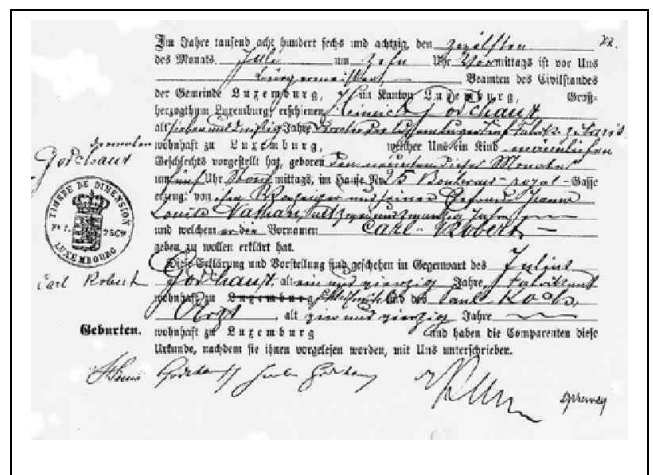 Im Jahre tausend acht hundert sechs und achtzig, den zwölften
des Monats Juli um zehn Uhr Vormittags ist vor Uns
Bürgermeister, Beamten des Civilstandes
der Gemeinde Luxemburg, im Kanton Luxemburg, Groß-
herzogthum Luxemburg, erschienen Heinrich Godchaux
alt sieben und dreißig Jahre
wohnhaft zu Luxemburg, welcher Uns ein Kind männlichen
Godchaux
Geschlechts vorgestellt hat, geboren den neunten dieses Monats
um fünf Uhr mittags, im Hause No 25 Boulevard royal Gasse
erzeugt von ihm Anzeiger und seiner Ehefrau Jeanne
Louise Nathan, alt zwei und zwanzig Jahre
und welchem er den Vornamen Carl-Robert
geben zu wollen erklärt hat.
TIMBRE DE DIMENSION
LUXEMBOURG
Diese Erklärung und Vorstellung sind geschehen in Gegenwart des Julius
Carl Robert
Godchaux, alt ein und vierzig Jahre, Fabrikant
wohnhaft zu Luxemburg und des Paul Koch,
Arzt, alt vier und vierzig Jahre
Geburten.
wohnhaft zu Luxemburg und haben die Comparenten diese
Urkunde, nachdem sie ihnen vorgelesen worden, mit Uns unterschrieben.
Godchaux Godchaux